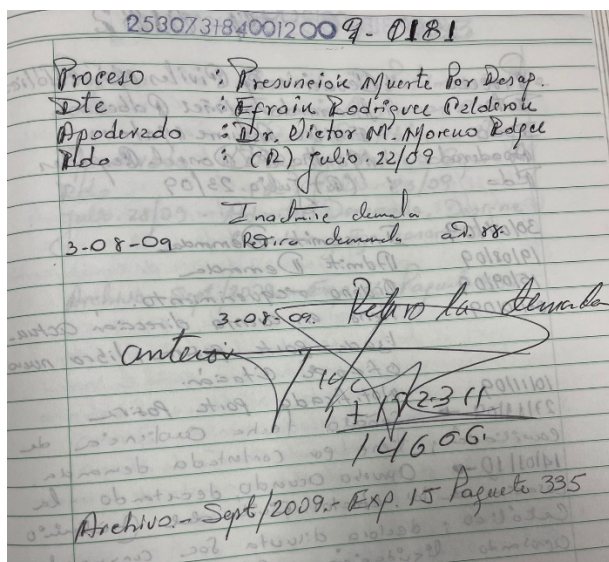 253073184001200 9-0181
Proceso : Presuncion Muerte Por Desap.
Dte : Efrain Rodriguez Calderon
Apoderado : Dr. Victor M. Moreno
Rdo : (R) Julio. 22/09
Inadmite demanda
3-08-09 Retira demanda art. 88.
3-08-09. Retiro la demanda
anterior
14606
Archivo.- Sept/2009.- Exp. 15 Paquete 335